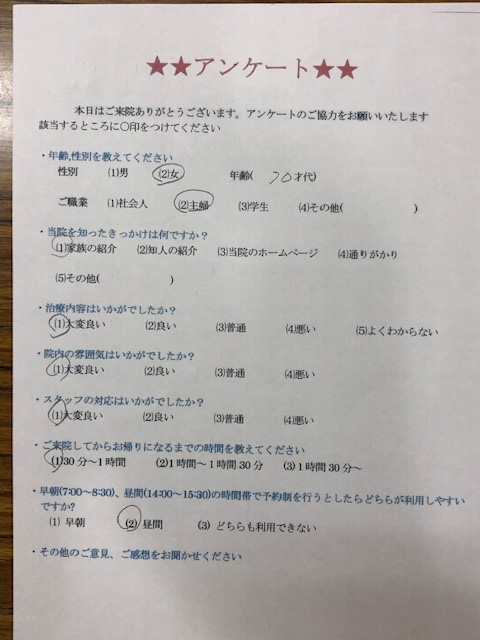 ★★アンケート★★
本日はご来院ありがとうございます。アンケートのご協力をお願いいたします
該当するところに〇印をつけてください
・年齢,性別を教えてください
性別 (1)男 (2)女 年齢( 70才代)
ご職業 (1)社会人 (2)主婦 (3)学生 (4)その他( )
・当院を知ったきっかけは何ですか?
(1)家族の紹介 (2)知人の紹介 (3)当院のホームページ (4)通りがかり
(5)その他( )
・治療内容はいかがでしたか?
(1)大変良い (2)良い (3)普通 (4)悪い (5)よくわからない
・院内の雰囲気はいかがでしたか?
(1)大変良い (2)良い (3)普通 (4)悪い
・スタッフの対応はいかがでしたか?
(1)大変良い (2)良い (3)普通 (4)悪い
・ご来院してからお帰りになるまでの時間を教えてください
(1)30分～1時間 (2)1時間～1時間30分 (3)1時間30分～
・早朝(7:00～8:30)、昼間(14:00～15:30)の時間帯で予約制を行うとしたらどちらが利用しやすい
ですか?
(1) 早朝 (2) 昼間 (3) どちらも利用できない
・その他のご意見、ご感想をお聞かせください